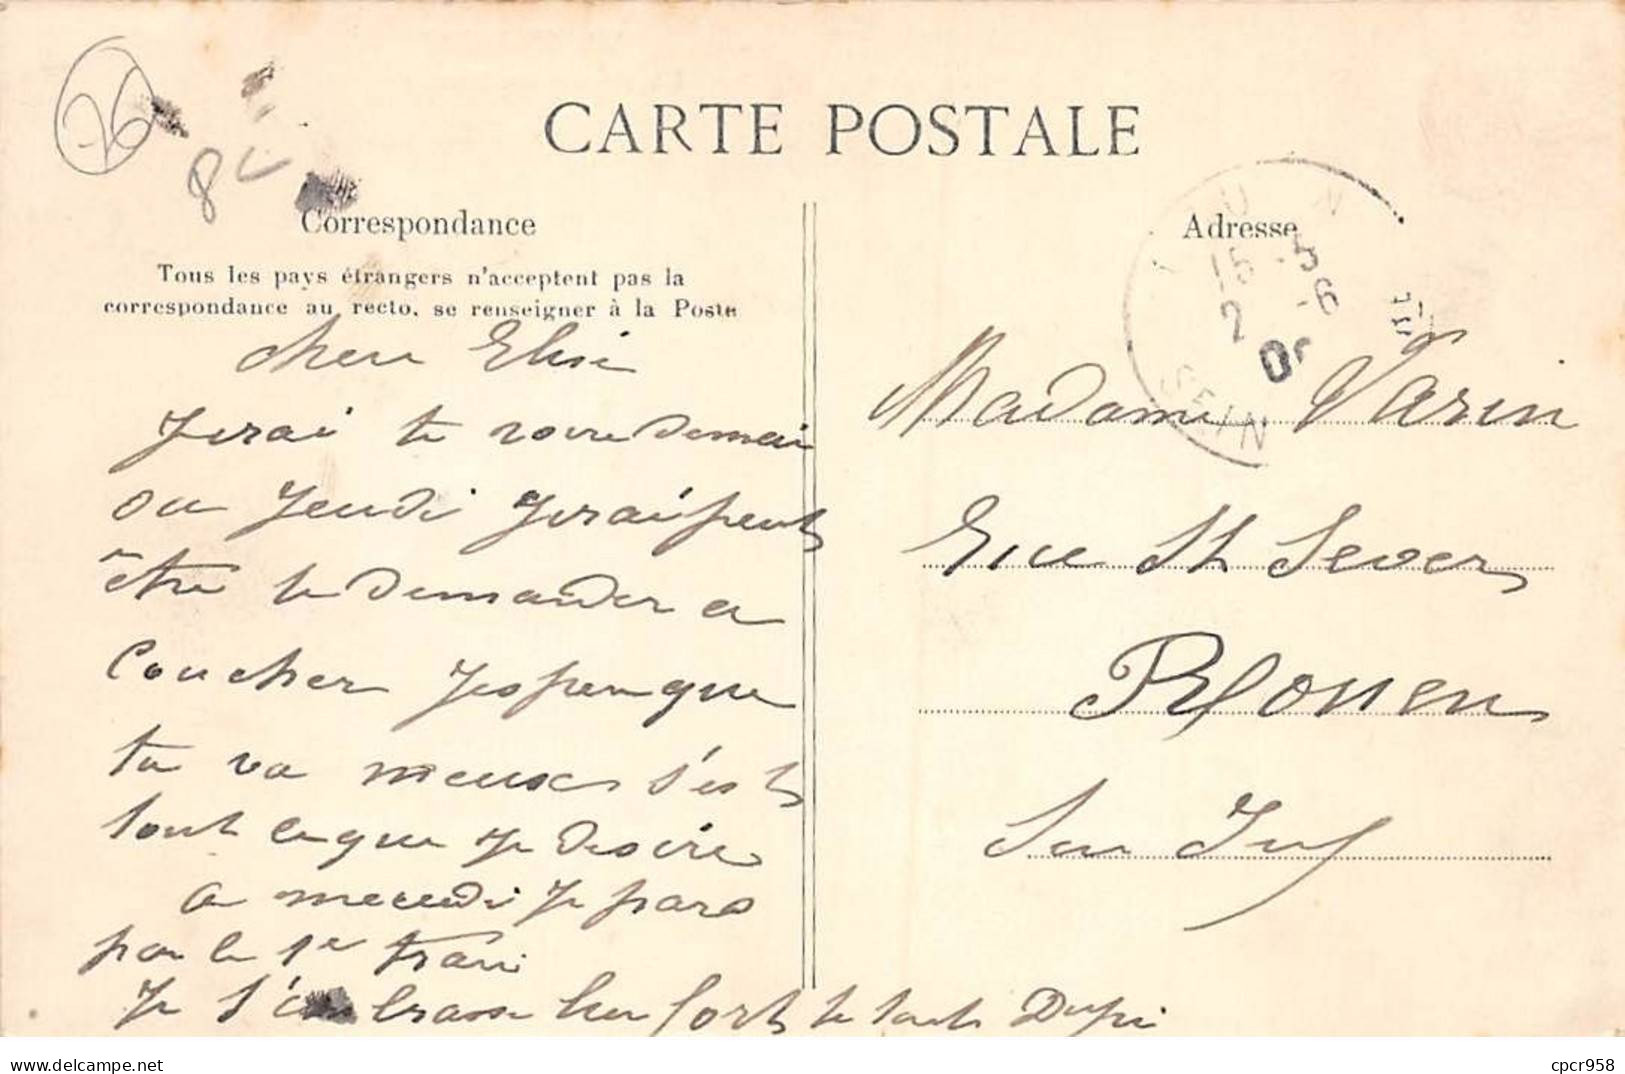 76
8
CARTE POSTALE
Correspondance
Tous les pays étrangers n'acceptent pas la
correspondance au recto, se renseigner à la Poste
cher Elise
Jerai te voire demain
ou Jeudi Jeraipeut
être te demander a
Coucher Jesperuque
tu va meux s'est
tout ceque Je désire
a mercredi Je pars
par le 1er train
Je t'embrasse bien fort ta tante
Adresse
15 5
2 -6
SEIN
Madame Varin
Rue St Sever
Rouen
Sen Inf
delcampe.net
cpcr958